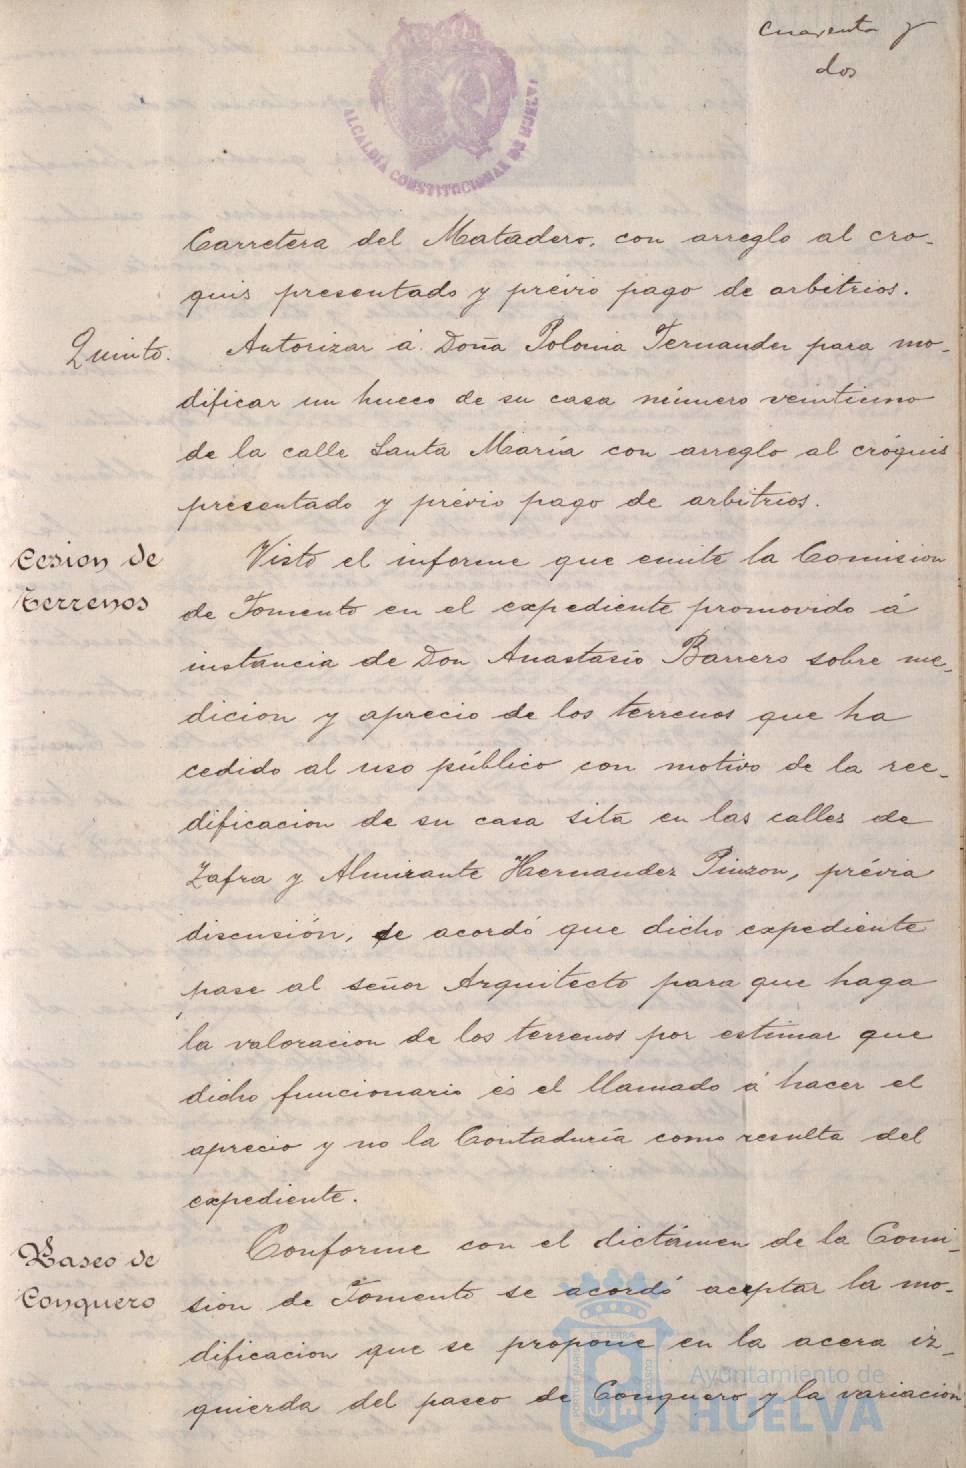 cuarenta y
dos
ALCALDÍA CONSTITUCIONAL DE HUELVA
Carretera del Matadero, con arreglo al cro-
quis presentado y prévio pago de arbitrios.
Quinto.
Autorizar á Doña Polonia Fernandez para mo-
dificar un hueco de su casa número veintiuno
de la calle Santa María con arreglo al cróquis
presentado y prévio pago de arbitrios.
Cesion de
terrenos
Visto el informe que emite la Comision
de Fomento en el expediente promovido á
instancia de Don Anastasio Barrero sobre me-
dicion y aprecio de los terrenos que ha
cedido al uso público con motivo de la ree-
dificacion de su casa sita en las calles de
Zafra y Almirante Hernandez Pinzon, prévia
discusión, se acordó que dicho expediente
pase al señor Arquitecto para que haga
la valoracion de los terrenos por estimar que
dicho funcionario es el llamado á hacer el
aprecio y no la Contaduría como resulta del
expediente.
Paseo de
Conquero
Conforme con el dictámen de la Comi-
sion de Fomento se acordó aceptar la mo-
dificacion que se propone en la acera iz-
quierda del paseo de Conquero y la variacion
Ayuntamiento de
HUELVA